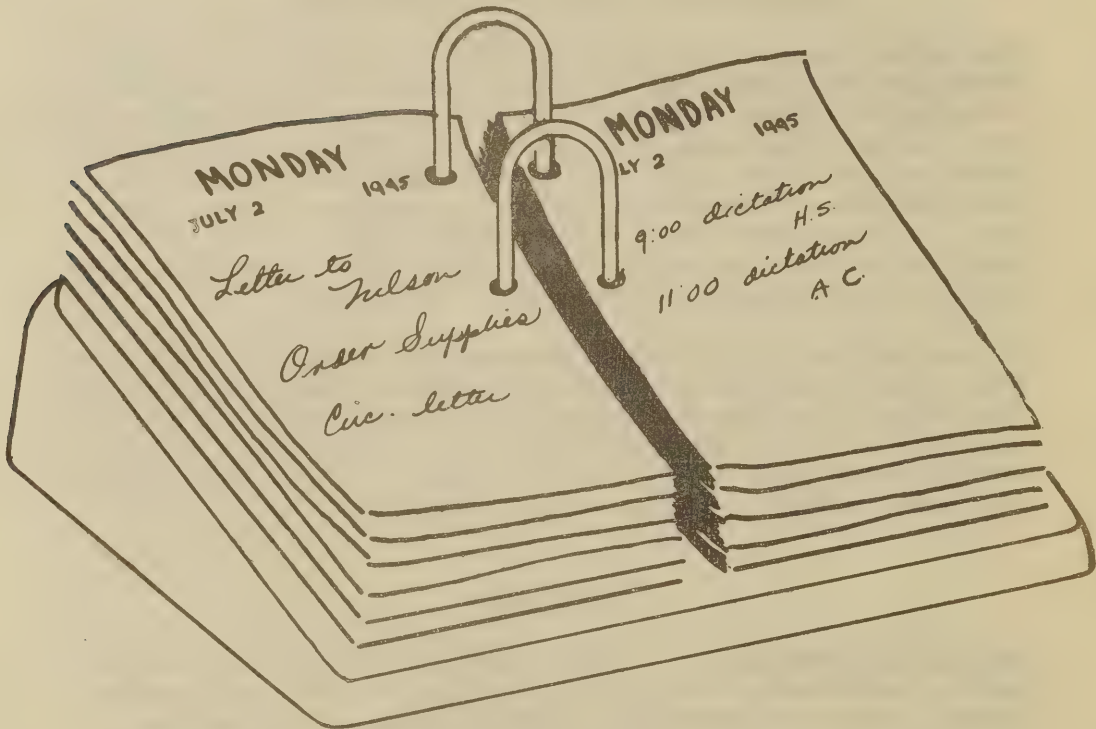 MONDAY
JULY 2 1945
Letter to
Nelson
Order Supplies
Circ. letter
MONDAY
LY 2 1945
9:00 dictation
H.S.
11:00 dictation
A C.